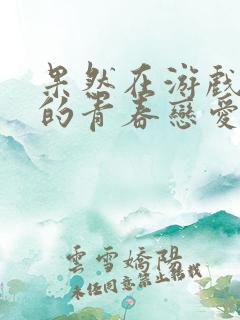 果然在游戲
的青春戀愛
雲雪嬌陽
未经同意禁止转载